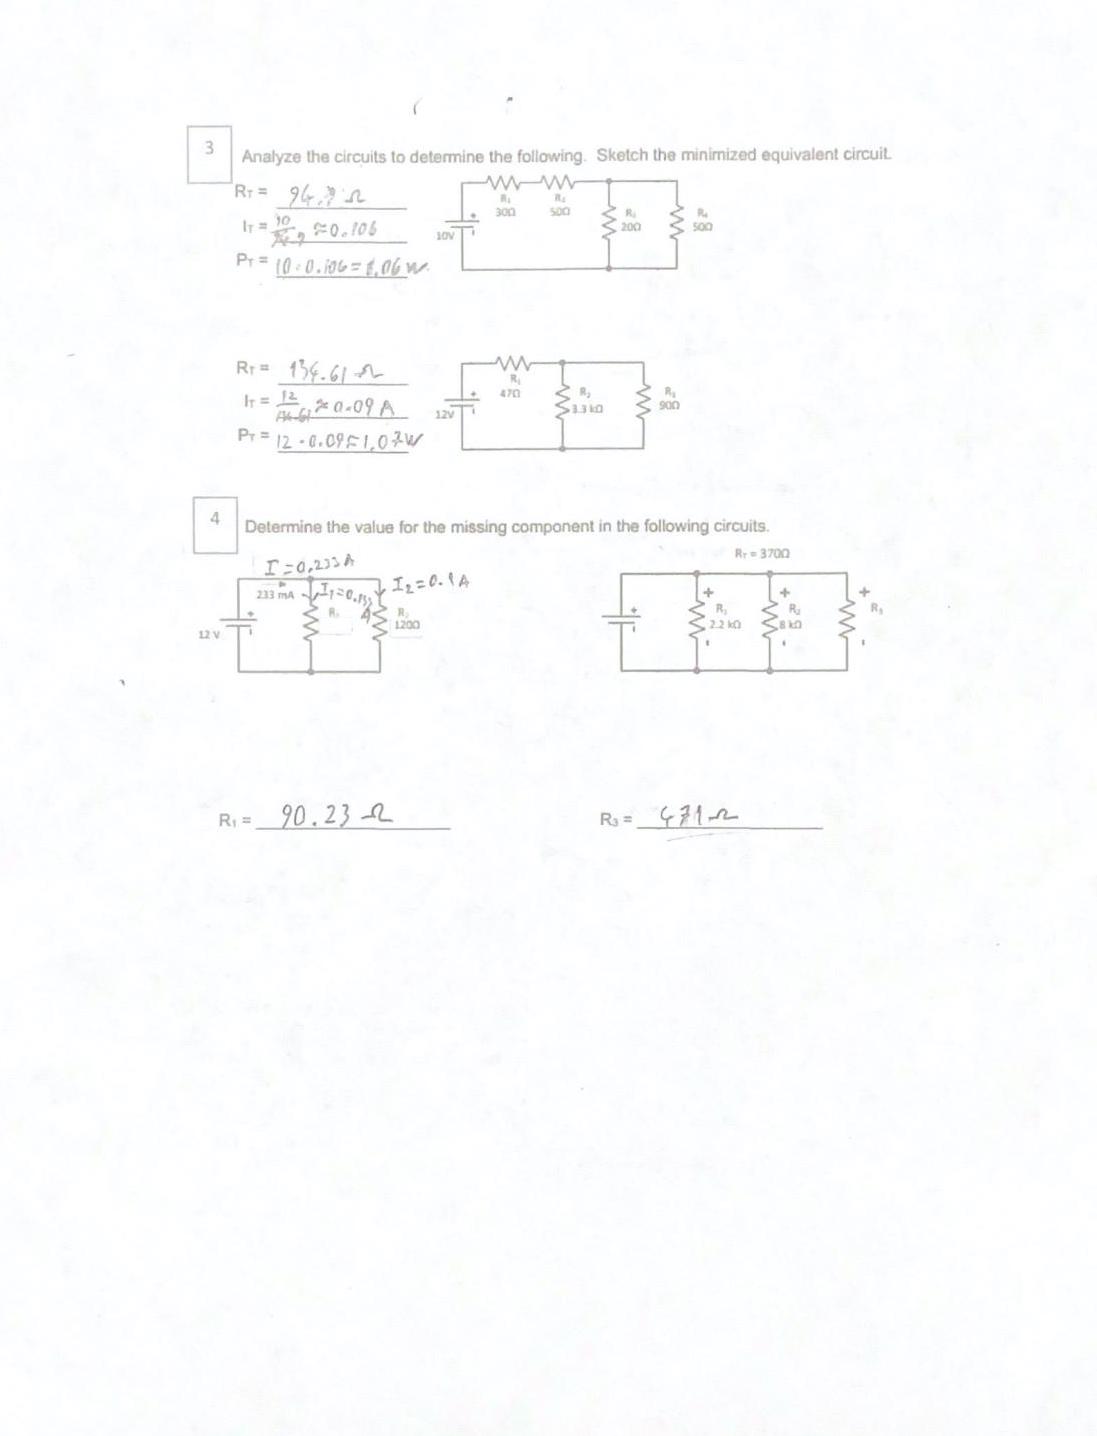 3
Analyze the circuits to determine the following. Sketch the minimized equivalent circuit.
RT = 94.2 Ω
IT = 10 ≈0.106
PT = 10·0.106=1.06 W.
R₁
30Ω
R₂
50Ω
10V
R₃
20Ω
R₄
50Ω
RT = 134.61 Ω
IT = 12/134.61 ≈ 0.09 A
PT = 12·0.09≈1.07W
R₁
47Ω
12V
R₂
3.3 kΩ
R₃
90Ω
4
Determine the value for the missing component in the following circuits.
I=0,233A
233 mA
I₁=0.133 A
I₂=0.1A
R₁
R₂
120Ω
12 V
RT = 370Ω
+ + +
R₁
2.2 kΩ
R₂
8 kΩ
R₃
R₁ = 90.23 Ω
R₃ = 471Ω